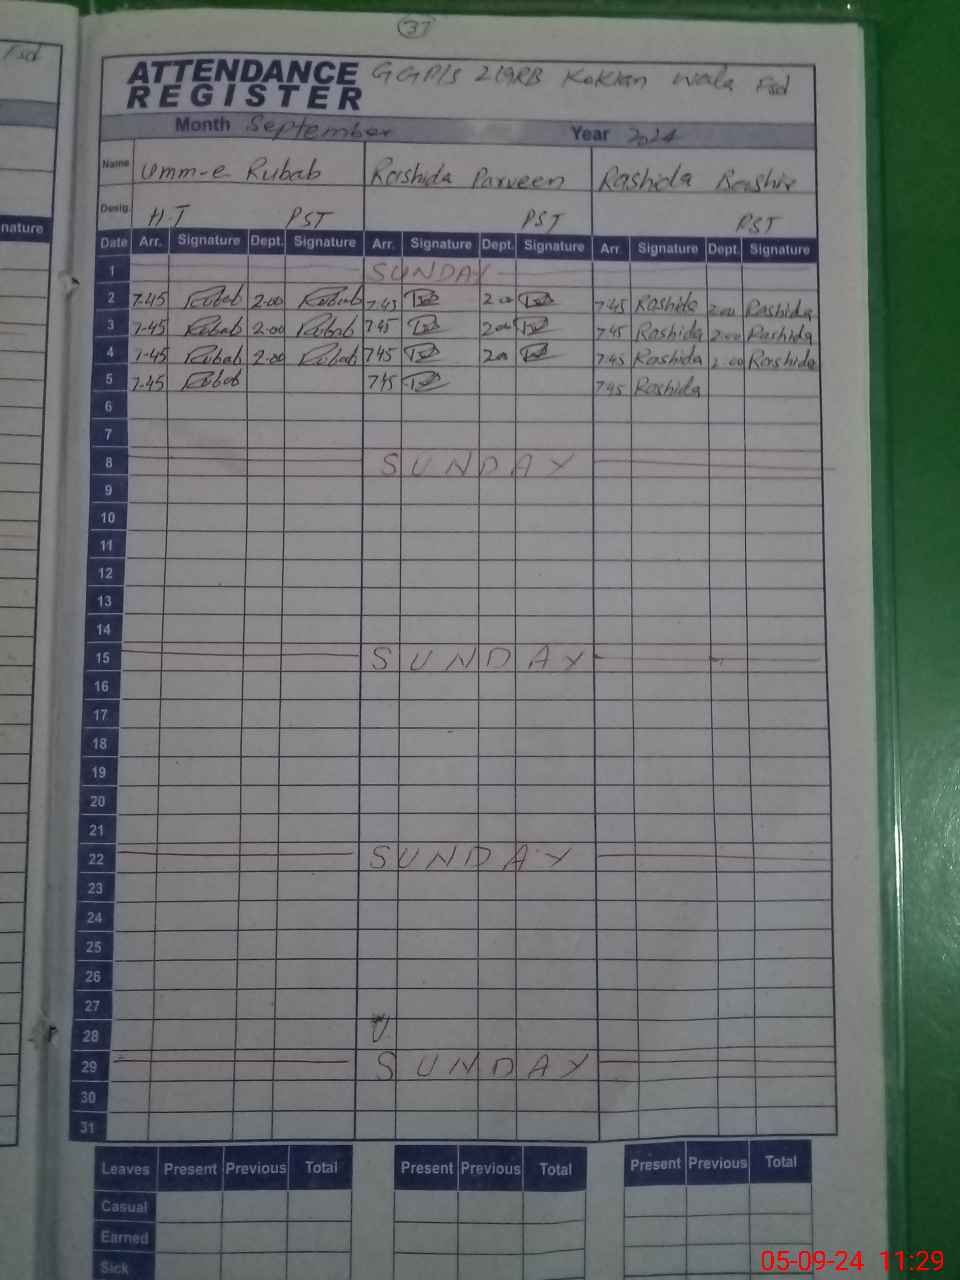 37
Fsd
ATTENDANCE REGISTER GGP/S 219RB Koklan Wala Fsd
Month September Year 2024
Name Umm-e Rubab Rashida Parveen Rashida Bashir
Desig. H.T PST PST PST
nature
Date Arr. Signature Dept. Signature Arr. Signature Dept. Signature Arr. Signature Dept. Signature
1 SUNDAY
2 7-45 Rubab 2-00 Rubab 7-45 2 00 7-45 Rashida 2.00 Rashida
3 7-45 Rubab 2-00 Rubab 745 200 745 Rashida 2.00 Rashida
4 7-45 Rubab 2-00 Rubab 745 200 745 Rashida 2.00 Rashida
5 7-45 Rubab 745 745 Rashida
6
7
8 SUNDAY
9
10
11
12
13
14
15 SUNDAY
16
17
18
19
20
21
22 SUNDAY
23
24
25
26
27
28
29 SUNDAY
30
31
Leaves Present Previous Total Present Previous Total Present Previous Total
Casual
Earned
Sick
05-09-24 11:29